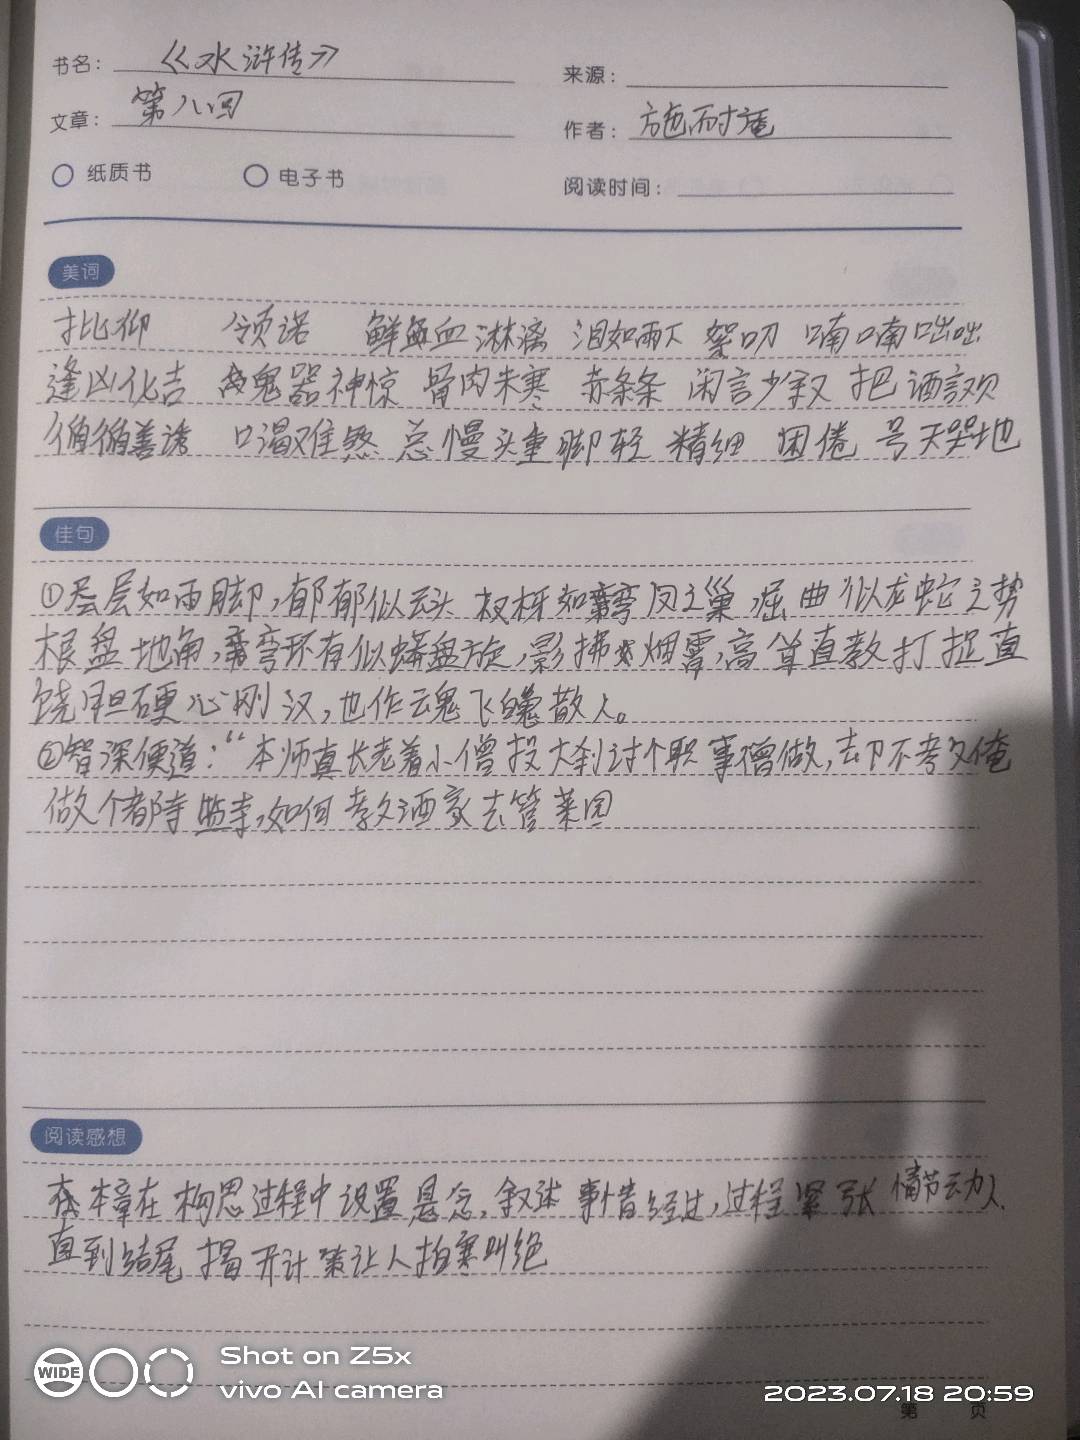 书名：《水浒传》
来源：
文章：第八回
作者：施耐庵
纸质书 电子书
阅读时间：
美词
批仰 领诺 鲜血淋漓 泪如雨下 絮叨 喃喃咄咄
逢凶化吉 魂器神惊 骨肉未寒 赤条条 闲言少叙 把酒言欢
循循善诱 口渴难熬 怠慢头重脚轻 精细 困倦 号天哭地
佳句
①层层如雨脚，郁郁似云头 杈枒如鸾凤之巢，屈曲似龙蛇之势
根盘地角，弯环有似蟒盘旋，影拂烟霄，高耸直教打捉直
饶胆硬心刚汉，也作云魂飞魄散人。
②智深便道：“本师真长老着小僧投大刹讨个职事僧做，却不教俺
做个都寺监寺，如何教洒家去管菜园
阅读感想
本章在构思过程中设置悬念，叙述事情经过，过程紧张情节动人，
直到结尾揭开计策让人拍案叫绝
WIDE
Shot on Z5x
vivo AI camera
2023.07.18 20:59
第 页